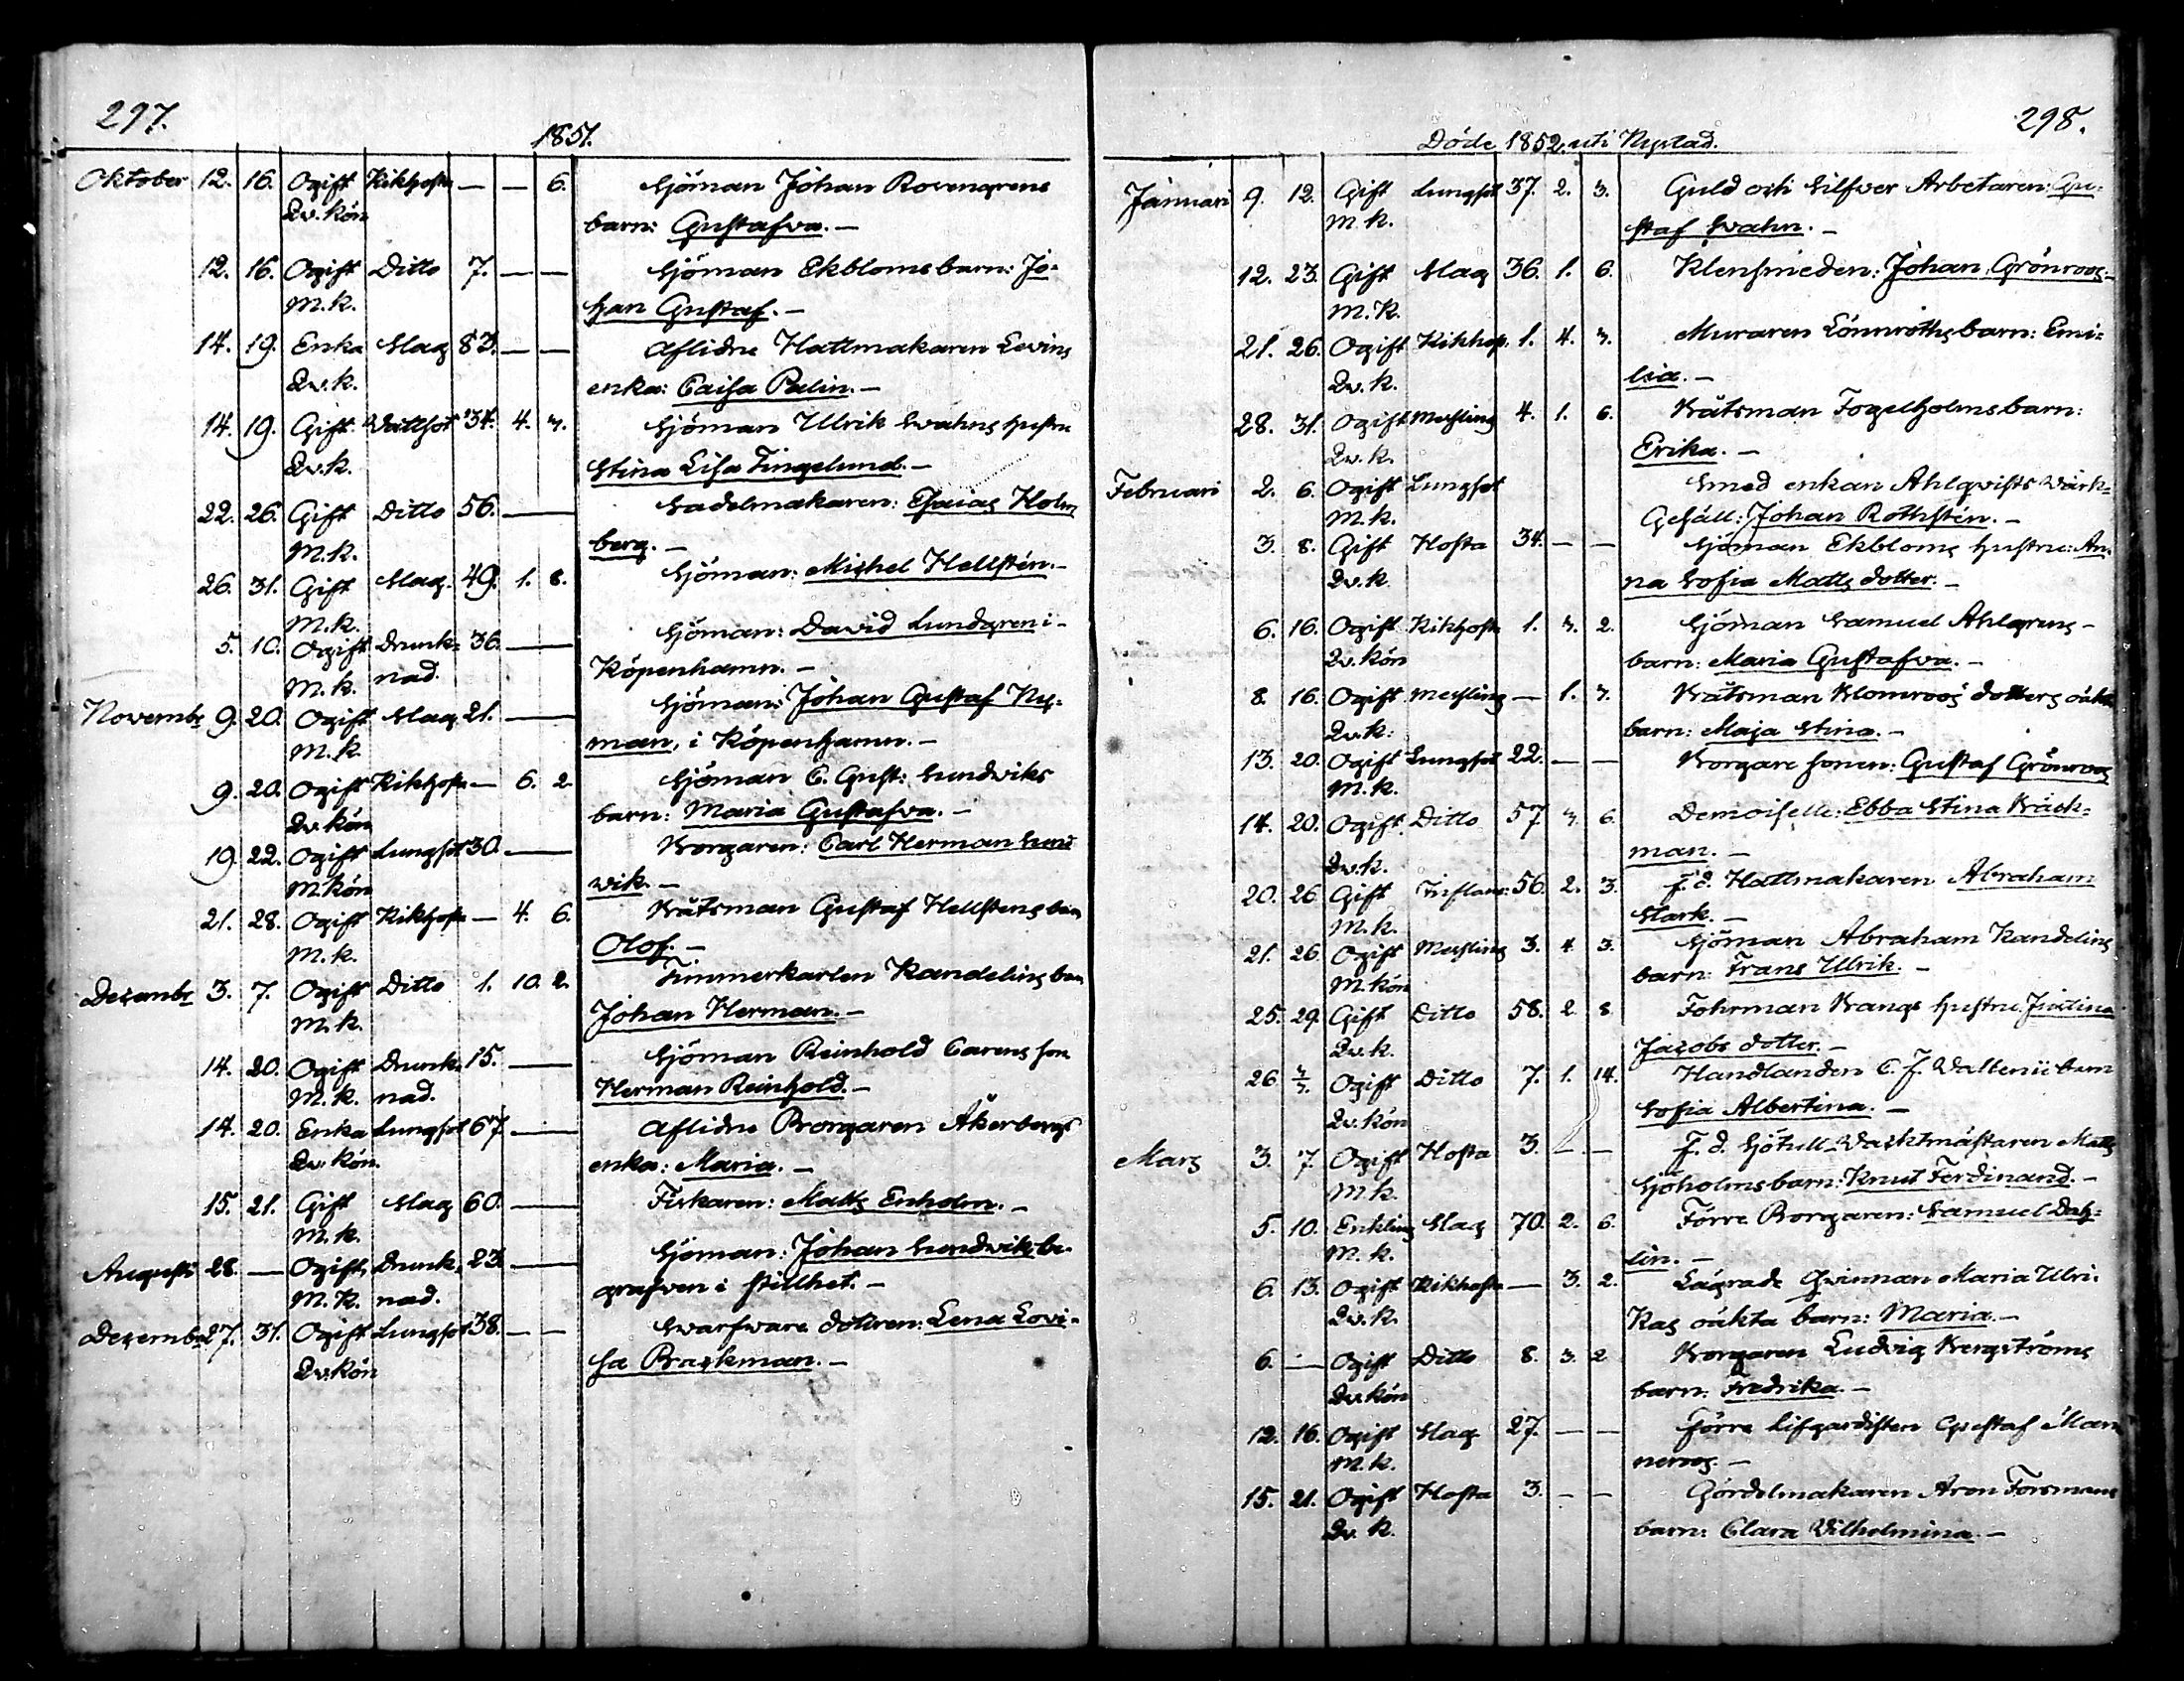 297.
1851.
Oktober 12. 16. Ogift Kikhosta — — 6. Sjöman Johan Rosengrens
Qv. kön barn: Gustafva. —
12. 16. Ogift Ditto 7. — — Sjöman Ekbloms barn: Jo-
M. k. han Gustaf. —
14. 19. Enka Slag 83. — — Aflidne Hattmakaren Levins
Qv. k. enka: Caisa Palin. —
14. 19. Gift Wattsot 34. 4. 3. Sjöman Ulrik Swahns hustru
Qv. k. Stina Lisa Tingelund. —
22. 26. Gift Ditto 56. — Sadelmakaren: Esaias Holm
M. k. berg. —
26. 31. Gift Slag. 49. 1. 8. Sjöman: Michel Hellstén. —
M. k.
5. 10. Ogift Drunk- 36. — Sjöman: David Lundgren i -
M. k. nad. Köpenhamn. —
Novembr 9. 20. Ogift Slag 21. — Sjöman: Johan Gustaf Ny-
M. k. man, i Köpenhamn. —
9. 20. Ogift Kikhosta — 6. 2. Sjöman C. Gust: Sundwiks
Qv. kön barn: Maria Gustafva. —
19. 22. Ogift Lungsot 30. — Borgaren: Carl Herman Sund
M. kön wik. —
21. 28. Ogift Kikhosta — 4. 6. Båtsman Gustaf Hellstens barn
M. k. Olof. —
Decembr 3. 7. Ogift Ditto 1. 10. 2. Timmerkarlen Kandelins barn
M. k. Johan Herman. —
14. 20. Ogift Drunk- 15. — Sjöman Reinhold Carens son
M. k. nad. Herman Reinhold. —
14. 20. Enka Lungsot 67. — Aflidne Borgaren Åkerbergs
Qv. kön. enka: Maria. —
15. 21. Gift Slag 60. — Fiskaren: Matts Enholm. —
M. k.
Augusti 28. — Ogift Drunk- 23. — Sjöman: Johan Sundwik, be-
M. k. nad. grafven i stillhet. —
Decembr 27. 31. Ogift Lungsot 38. — — Swarfware dottren: Lena Lovi-
Qv. kön sa Brackman. —
298.
Döde 1852. uti Nystad.
Januari 9. 12. Gift Lungsot 37. 2. 3. Guld och Silfver Arbetaren: Gu-
M. k. staf Swahn. —
12. 23. Gift Slag 36. 1. 6. Klensmeden: Johan Grönroos. —
M. K.
21. 26. Ogift Kikhos. 1. 4. 3. Muraren Lönnroths barn: Emi-
Qv. k. lia. —
28. 31. Ogift Messling 4. 1. 6. Båtsman Fogelholms barn:
Qv. k. Erika. —
Februari 2. 6. Ogift Lungsot Smed enkan Ahlqvists Wärk-
M. k. Gesäll: Johan Rothstén. —
3. 8. Gift Hosta 34. — — Sjöman Ekbloms hustru: An-
Qv. k. na Sofia Matts dotter. —
6. 16. Ogift Kikhosta 1. 3. 2. Sjöman Samuel Ahlgrens -
Qv. kön barn: Maria Gustafva. —
8. 16. Ogift Messling — 1. 3. Båtsman Blomroos dotters oäkta
Qv. k. barn: Maja Stina. —
13. 20. Ogift Lungsot 22. — — Borgare sonen: Gustaf Grönroos
M. k.
14. 20. Ogift Ditto 57 3. 6. Demoiselle: Ebba Stina Bäck-
Qv. k. man. —
20. 26. Gift Inflam: 56. 2. 3. f. d. Hattmakaren Abraham
M. k. Stark. —
21. 26. Ogift Messling 3. 4. 3. Sjöman Abraham Kandelins
M. kön barn: Frans Ulrik. —
25. 29. Gift Ditto 58. 2. 8. Fohrman Bangs hustru
Qv. k. Jacobs dotter. —
26 3/3. Ogift Ditto 7. 1. 14. Handlanden C. J. barn
Qv. kön Sofia Albertina. —
Mars 3. 7. Ogift Hosta 3. — — F. d. Sjötull-Wacktmästaren Matts
M. k. Sjöholms barn: Knut Ferdinand. —
5. 10. Enkling Slag 70. 2. 6. Förre Borgaren: Samuel Dah-
M. k. lin. —
6. 13. Ogift Kikhosta — 3. 2. Lägrade Qvinnan Maria Ulri-
Qv. k. kas oäkta barn: Maria. —
6. — Ogift Ditto 8. 3. 2 Borgaren Ludvig Bergströms
Qv. kön barn: Fredrika. —
12. 16. Ogift Slag 27. — — Förre Lifgardisten Gustaf Man
M. k. neroos. —
15. 21. Ogift Hosta 3. — — Gördelmakaren Aron Forsmans
Qv. k. barn: Clara Wilhelmina. —